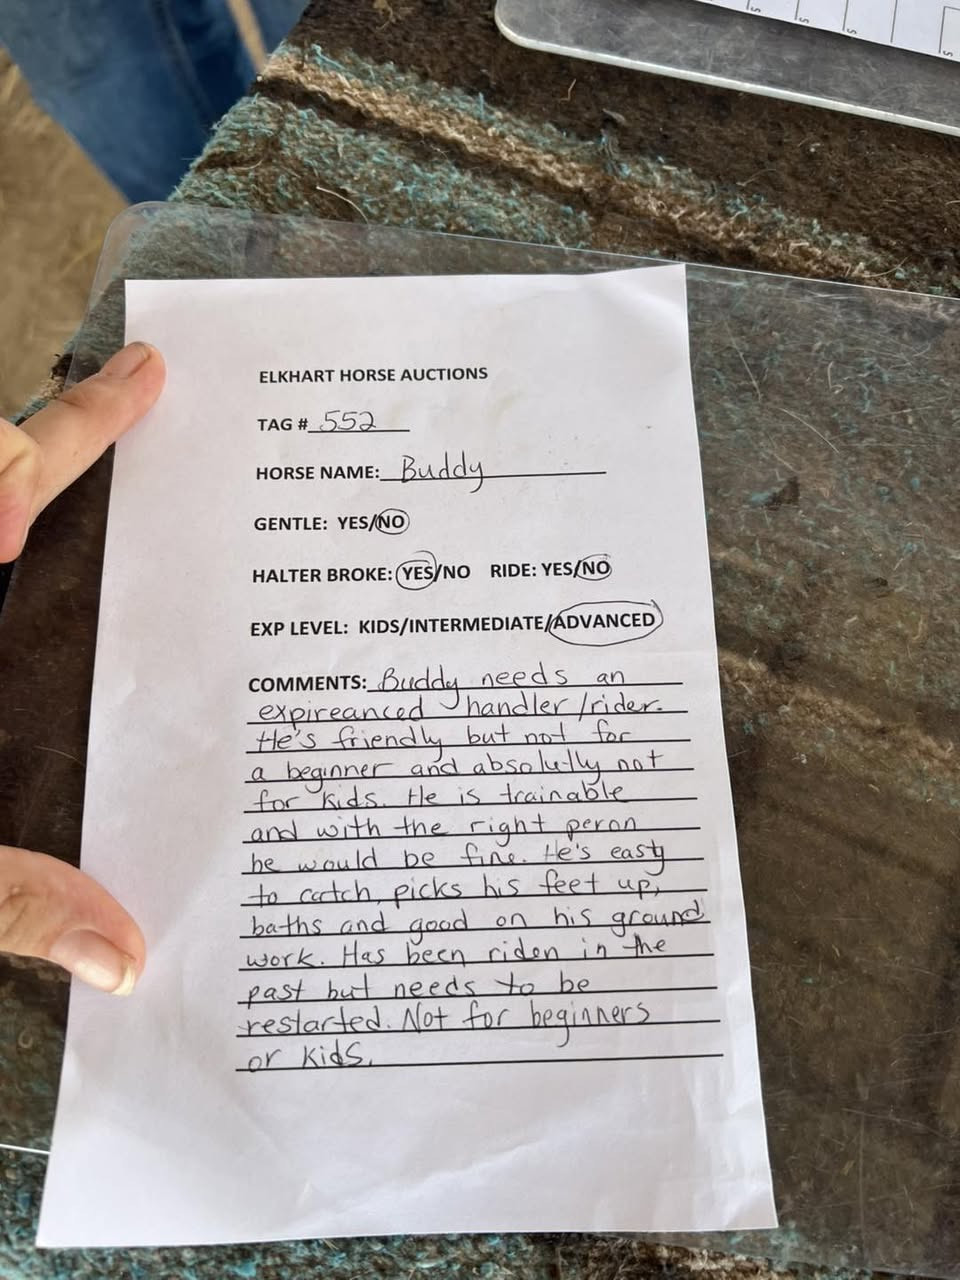 ELKHART HORSE AUCTIONS
TAG # 552
HORSE NAME: Buddy
GENTLE: YES/NO
HALTER BROKE: YES/NO RIDE: YES/NO
EXP LEVEL: KIDS/INTERMEDIATE/ADVANCED
COMMENTS: Buddy needs an
expireanced handler/rider.
He's friendly but not for
a beginner and absolutlly not
for kids. He is trainable
and with the right peron
he would be fine. He's easty
to catch, picks his feet up,
baths and good on his ground
work. Has been riden in the
past but needs to be
restarted. Not for beginners
or kids.